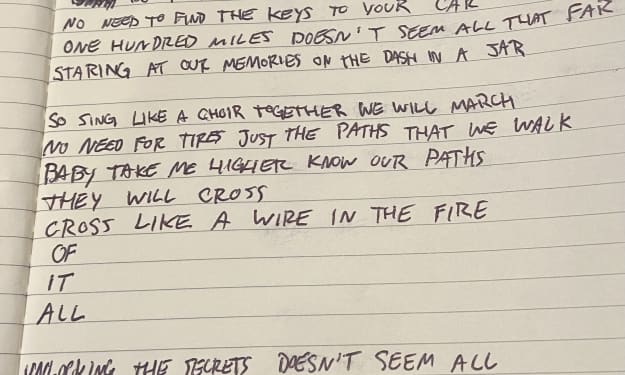 NO NEED TO FIND THE KEYS TO YOUR CAR
ONE HUNDRED MILES DOESN'T SEEM ALL THAT FAR
STARING AT OUR MEMORIES ON THE DASH IN A JAR
SO SING LIKE A CHOIR TOGETHER WE WILL MARCH
NO NEED FOR TIRES JUST THE PATHS THAT WE WALK
BABY TAKE ME HIGHER KNOW OUR PATHS
THEY WILL CROSS
CROSS LIKE A WIRE IN THE FIRE
OF
IT
ALL
UNLOCKING THE SECRETS DOESN'T SEEM ALL